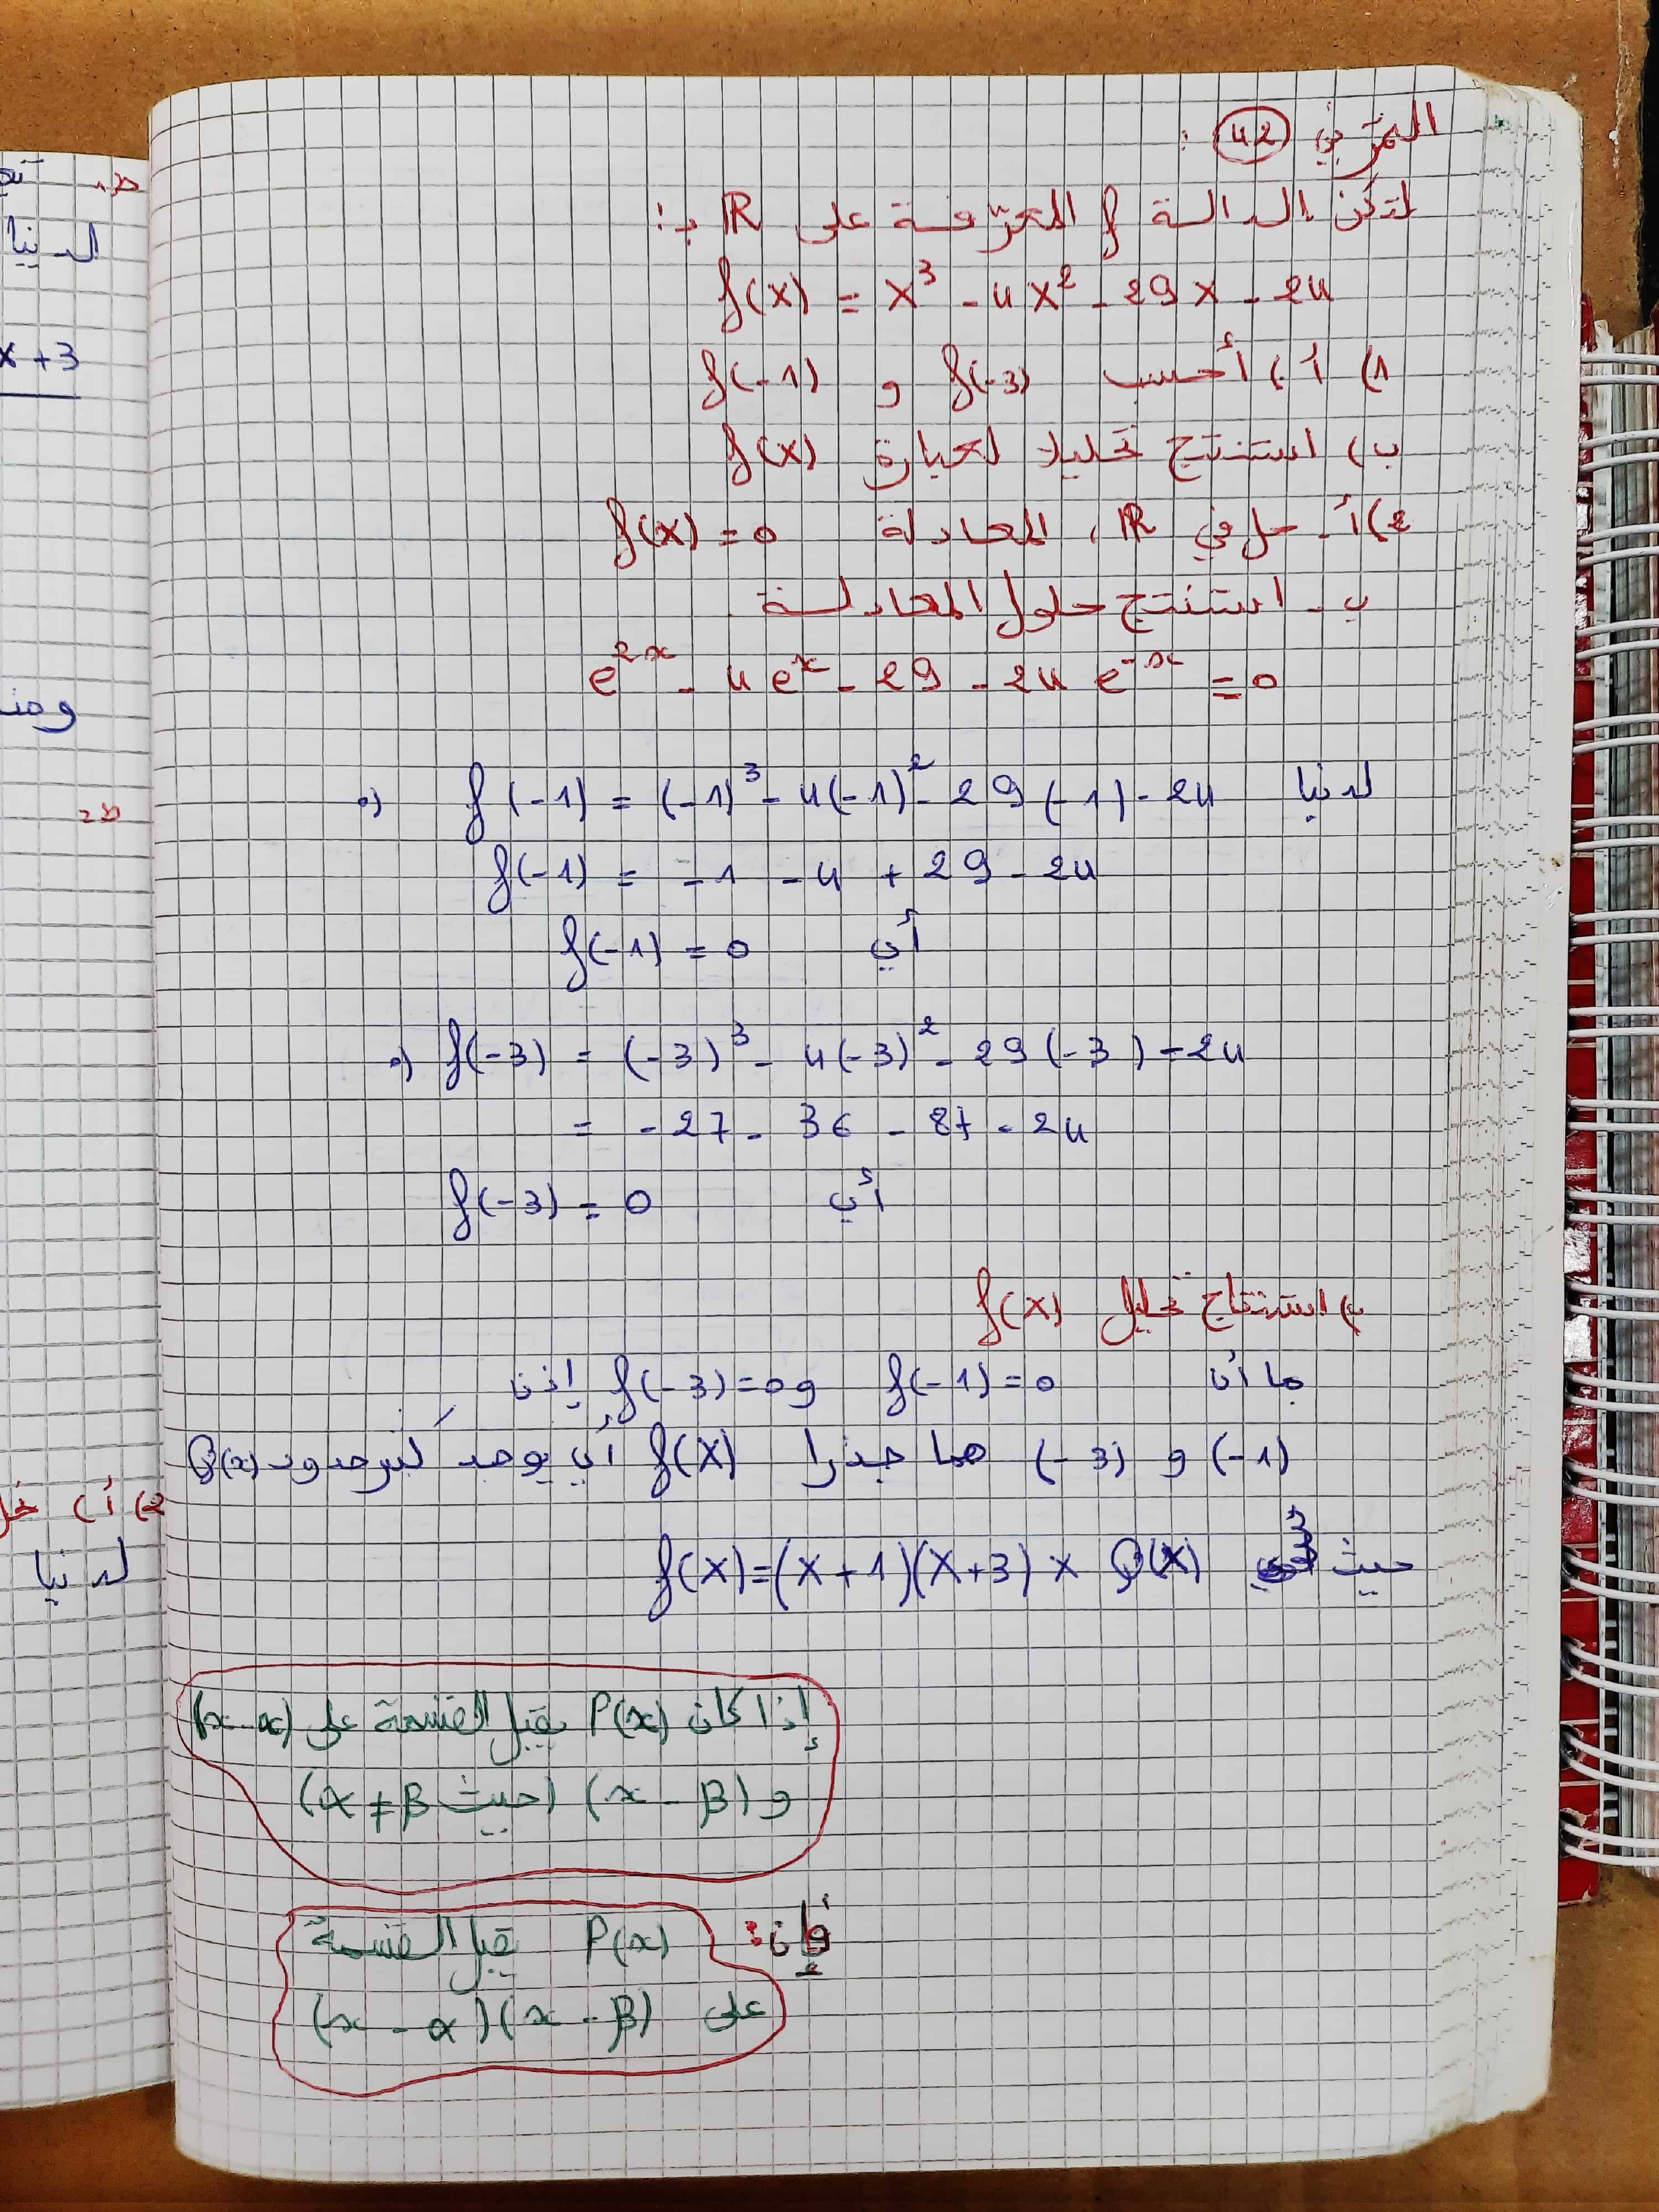 التمرين 42 :
لتكن الدالة f المعرّفة على ℝ بـ:
f(x) = x³ - 4x² - 29x - 24
1) أ) أحسب f(-3) و f(-1)
ب) استنتج تحليلا لعبارة f(x)
2) أ- حل في ℝ، المعادلة f(x) = 0
ب- استنتج حلول المعادلة
e^{2x} - 4e^{x} - 29 - 24e^{-x} = 0
لدينا f(-1) = (-1)³ - 4(-1)² - 29(-1) - 24
f(-1) = -1 - 4 + 29 - 24
أي f(-1) = 0
f(-3) = (-3)³ - 4(-3)² - 29(-3) - 24
= -27 - 36 - 87 - 24
أي f(-3) = 0
ب) استنتاج تحليل f(x)
بما أن f(-1) = 0 و f(-3) = 0 إذن
(-1) و (-3) هما جذرا f(x) أي يوجد كثير حدود Q(x)
حيث f(x) = (x+1)(x+3) × Q(x)
إذا كان P(x) يقبل القسمة على (x-α)
و (x-β) (حيث α≠β)
فإن: P(x) يقبل القسمة
على (x-α)(x-β)
تح
لدينا
x+3
ومنه
2) أ)
لدينا